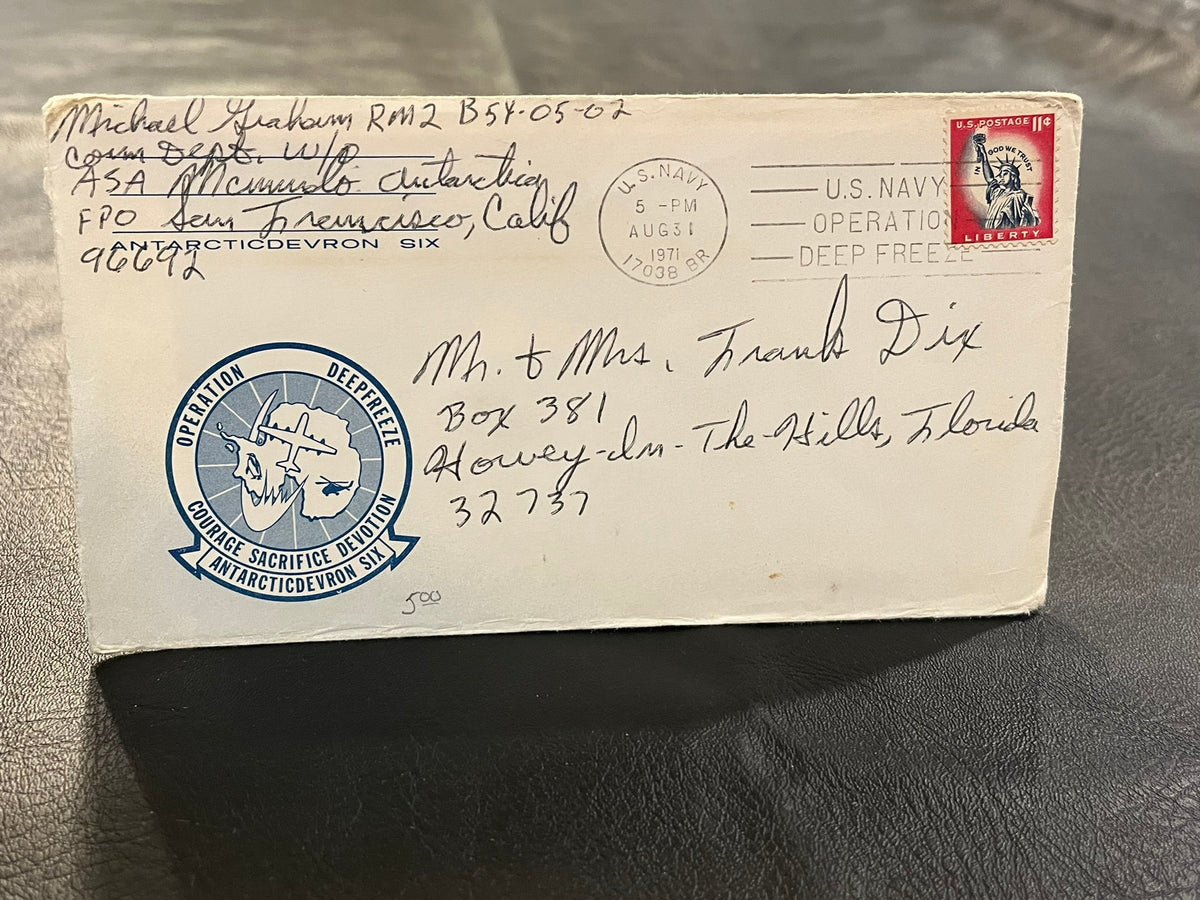 Michael Graham RM2 B54-05-02
Comm Dept. W/O
ASA McMurdo Antarctica
FPO San Francisco, Calif
ANTARCTICDEVRON SIX
96692
U.S. NAVY
5 -PM
AUG 31
1971
17038 BR
U.S. NAVY
OPERATION
DEEP FREEZE
U.S. POSTAGE 11¢
IN GOD WE TRUST
LIBERTY
Mr. + Mrs. Frank Dix
Box 381
Howey-In-The-Hills, Florida
32737
OPERATION DEEPFREEZE
COURAGE SACRIFICE DEVOTION
ANTARCTICDEVRON SIX
5.00